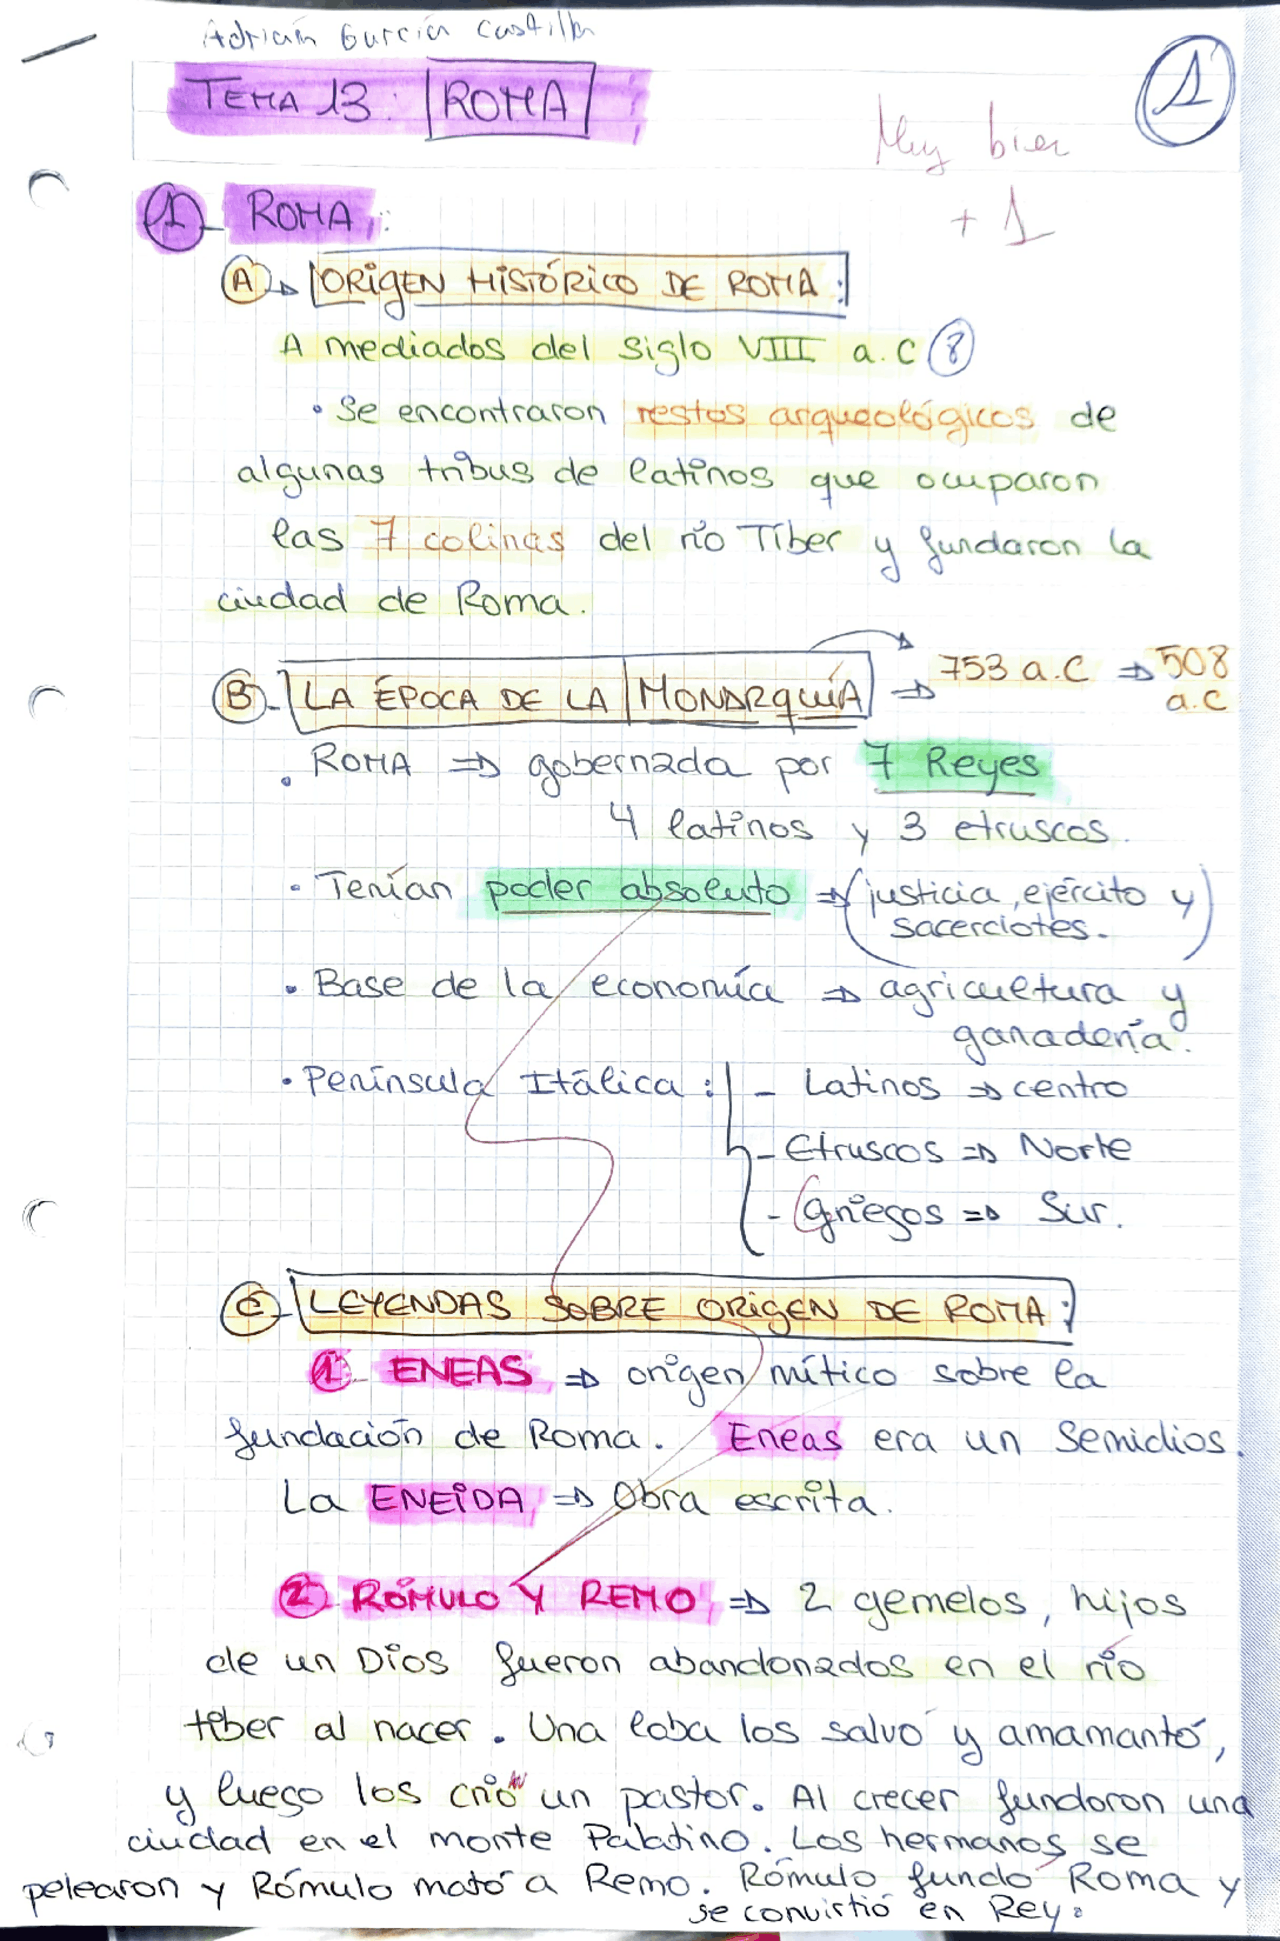 Adrián García Castilla
TEMA 13: ROMA
1
Muy bien
+ 1
1- ROMA:
A → ORIGEN HISTÓRICO DE ROMA:
A mediados del siglo VIII a.C 8
• Se encontraron restos arqueológicos de
algunas tribus de latinos que ocuparon
las 7 colinas del río Tíber y fundaron la
ciudad de Roma.
B- LA ÉPOCA DE LA MONARQUÍA ⇒ 753 a.C ⇒ 508
a.C
• ROMA ⇒ gobernada por 7 Reyes
4 latinos y 3 etruscos.
• Tenían poder absoluto ⇒ (justicia, ejército y
sacerdotes.)
• Base de la economía ⇒ agricultura y
ganadería.
• Península Itálica: - Latinos ⇒ centro
- Etruscos ⇒ Norte
- Griegos ⇒ Sur.
C- LEYENDAS SOBRE ORIGEN DE ROMA:
1- ENEAS ⇒ origen mítico sobre la
fundación de Roma. Eneas era un Semidios.
La ENEIDA ⇒ Obra escrita.
2 RÓMULO Y REMO ⇒ 2 gemelos, hijos
de un Dios fueron abandonados en el río
tíber al nacer. Una loba los salvó y amamantó,
y luego los crió un pastor. Al crecer fundoron una
ciudad en el monte Palatino. Los hermanos se
pelearon y Rómulo mató a Remo. Rómulo fundó Roma y
se convirtió en Rey.